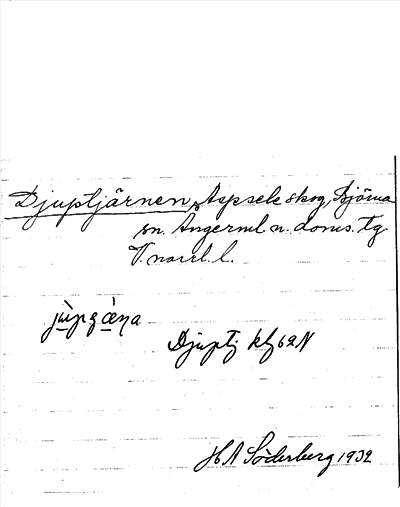 Djuptjärnen, Aspsele skog, Björna
sn. Ångerml n. doms. tg
V.norrl. l.
Djuptj kbl 62N
H A Söderberg 1932